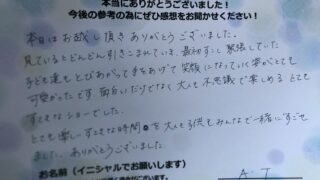 本当にありがとうございました!
今後の参考の為にぜひ感想をお聞かせください!
本日はお越し頂きありがとうございました。
見ているとどんどん引きこまれていき、最初すごく緊張していた
子ども達もとびあがって手をあげて笑顔になっていく姿がとても
可愛かったです。面白いだけでなく大人も不思議で楽しめる とても
すてきなショーでした。
とても楽しいすてきな時間を大人も子供もみんなで一緒にすごせ
ました。ありがとうございました。
お名前(イニシャルでお願いします)
A.T